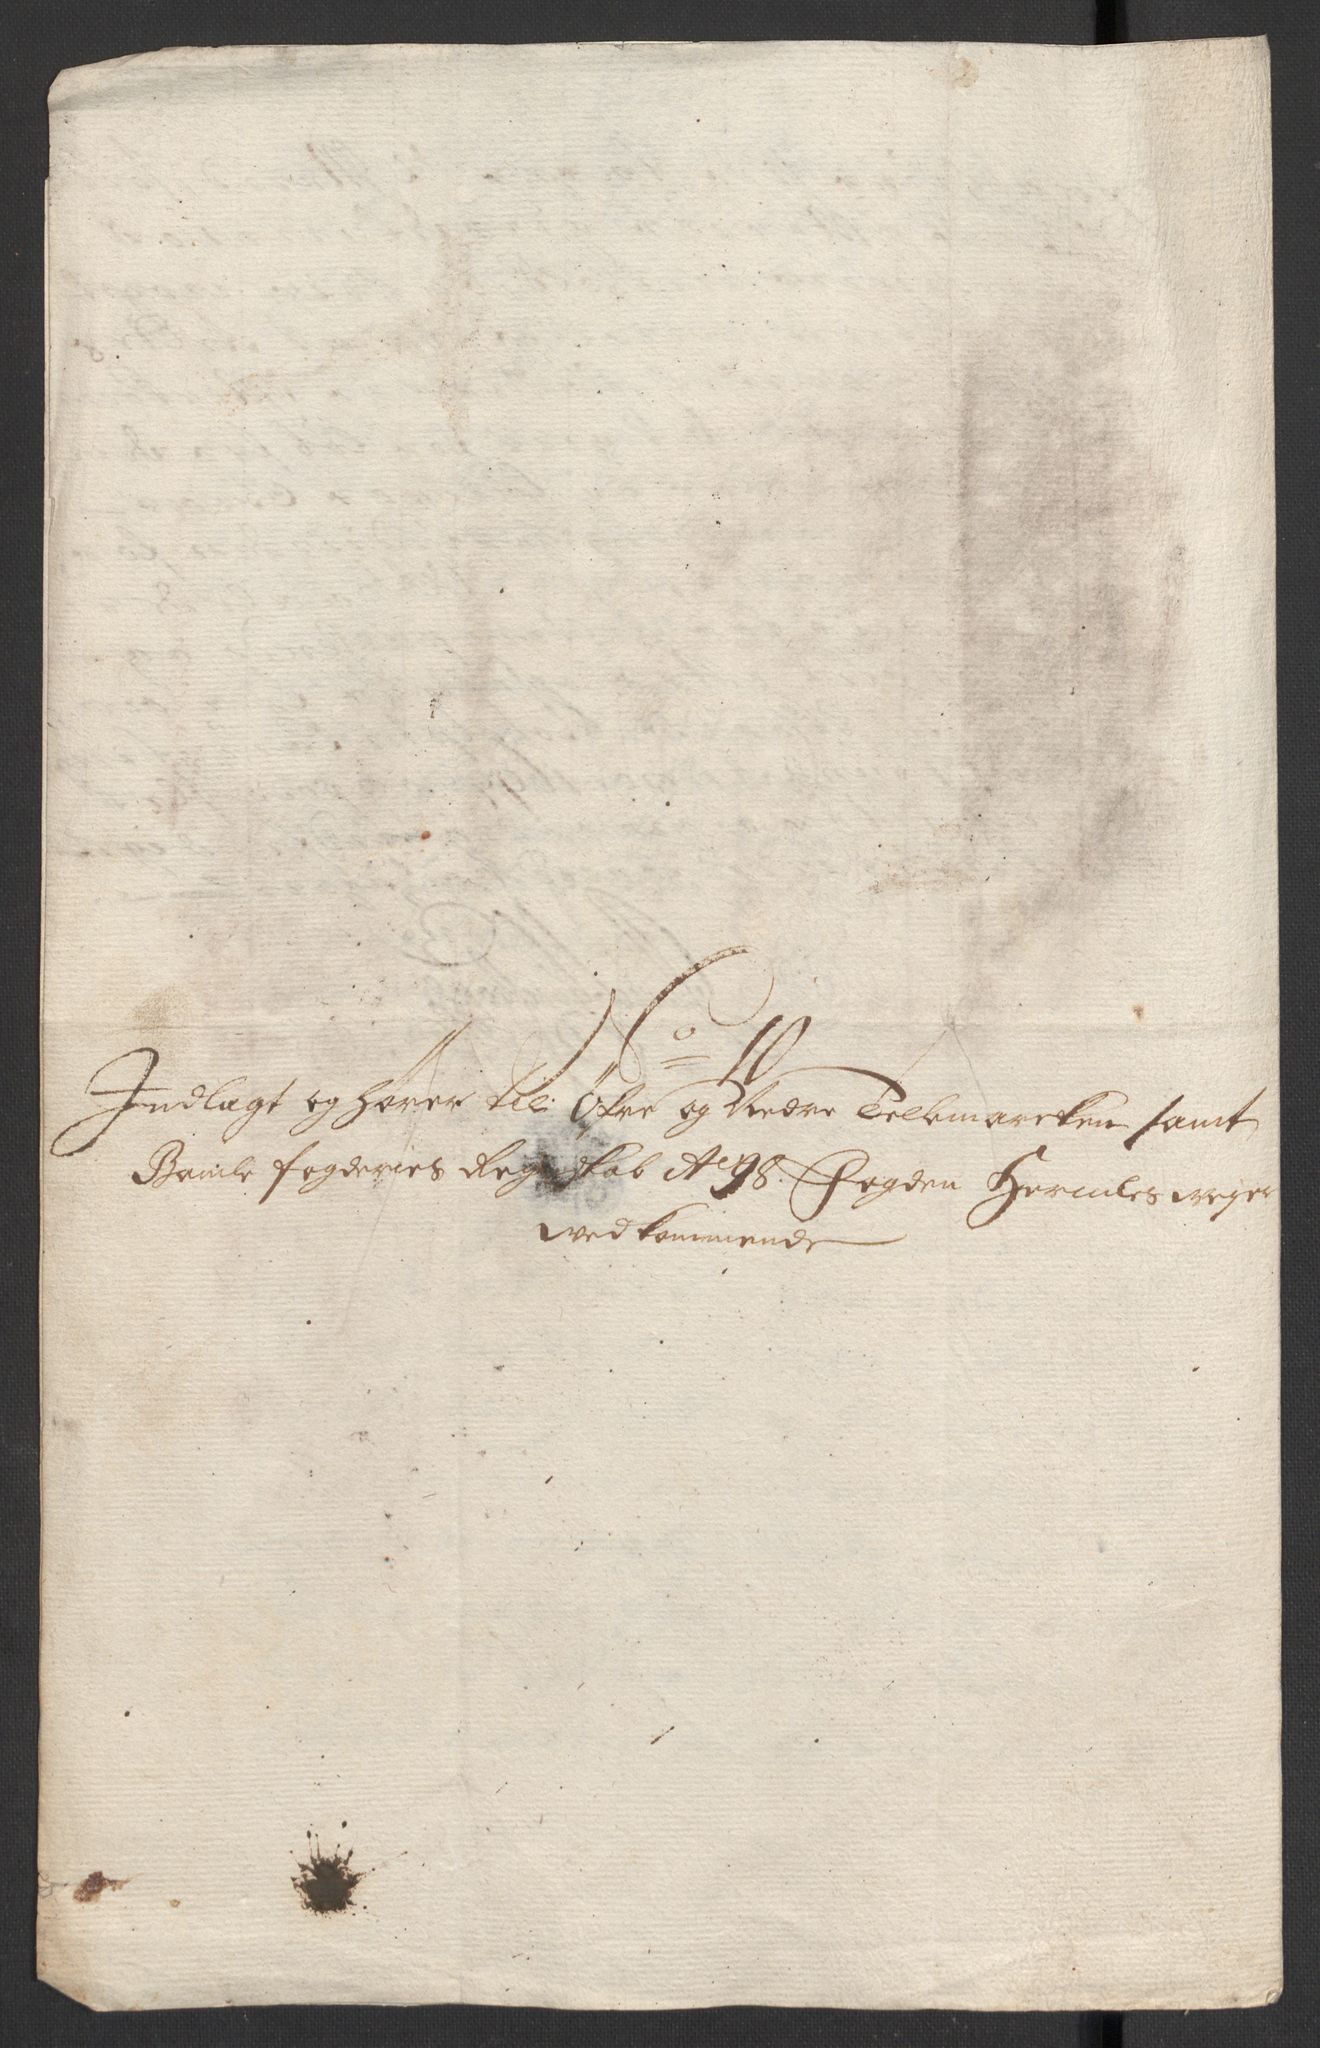 No
Indlagt og hører til Øfre og Nedre Tellemarcken samt
Bamle fogderies Regnskab Ao 98. Fogden Hercules weyer
vedkommende